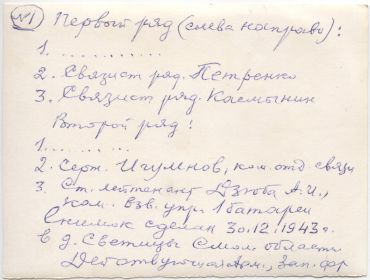 №1 Первый ряд (слева направо):
1. . . . . . . . . . . .
2. Связист ряд. Петренко
3. Связист ряд. Касмынин
Второй ряд:
1. . . . . . . . .
2. Серж. Игумнов, ком. отд. связи
3. Ст. лейтенант Дзюба А.И.,
ком. взв. упр. 1 батареи
Снимок сделан 30.12.1943 г.
в д. Светицы Смол. области
Действующая Арм., Зап. фр